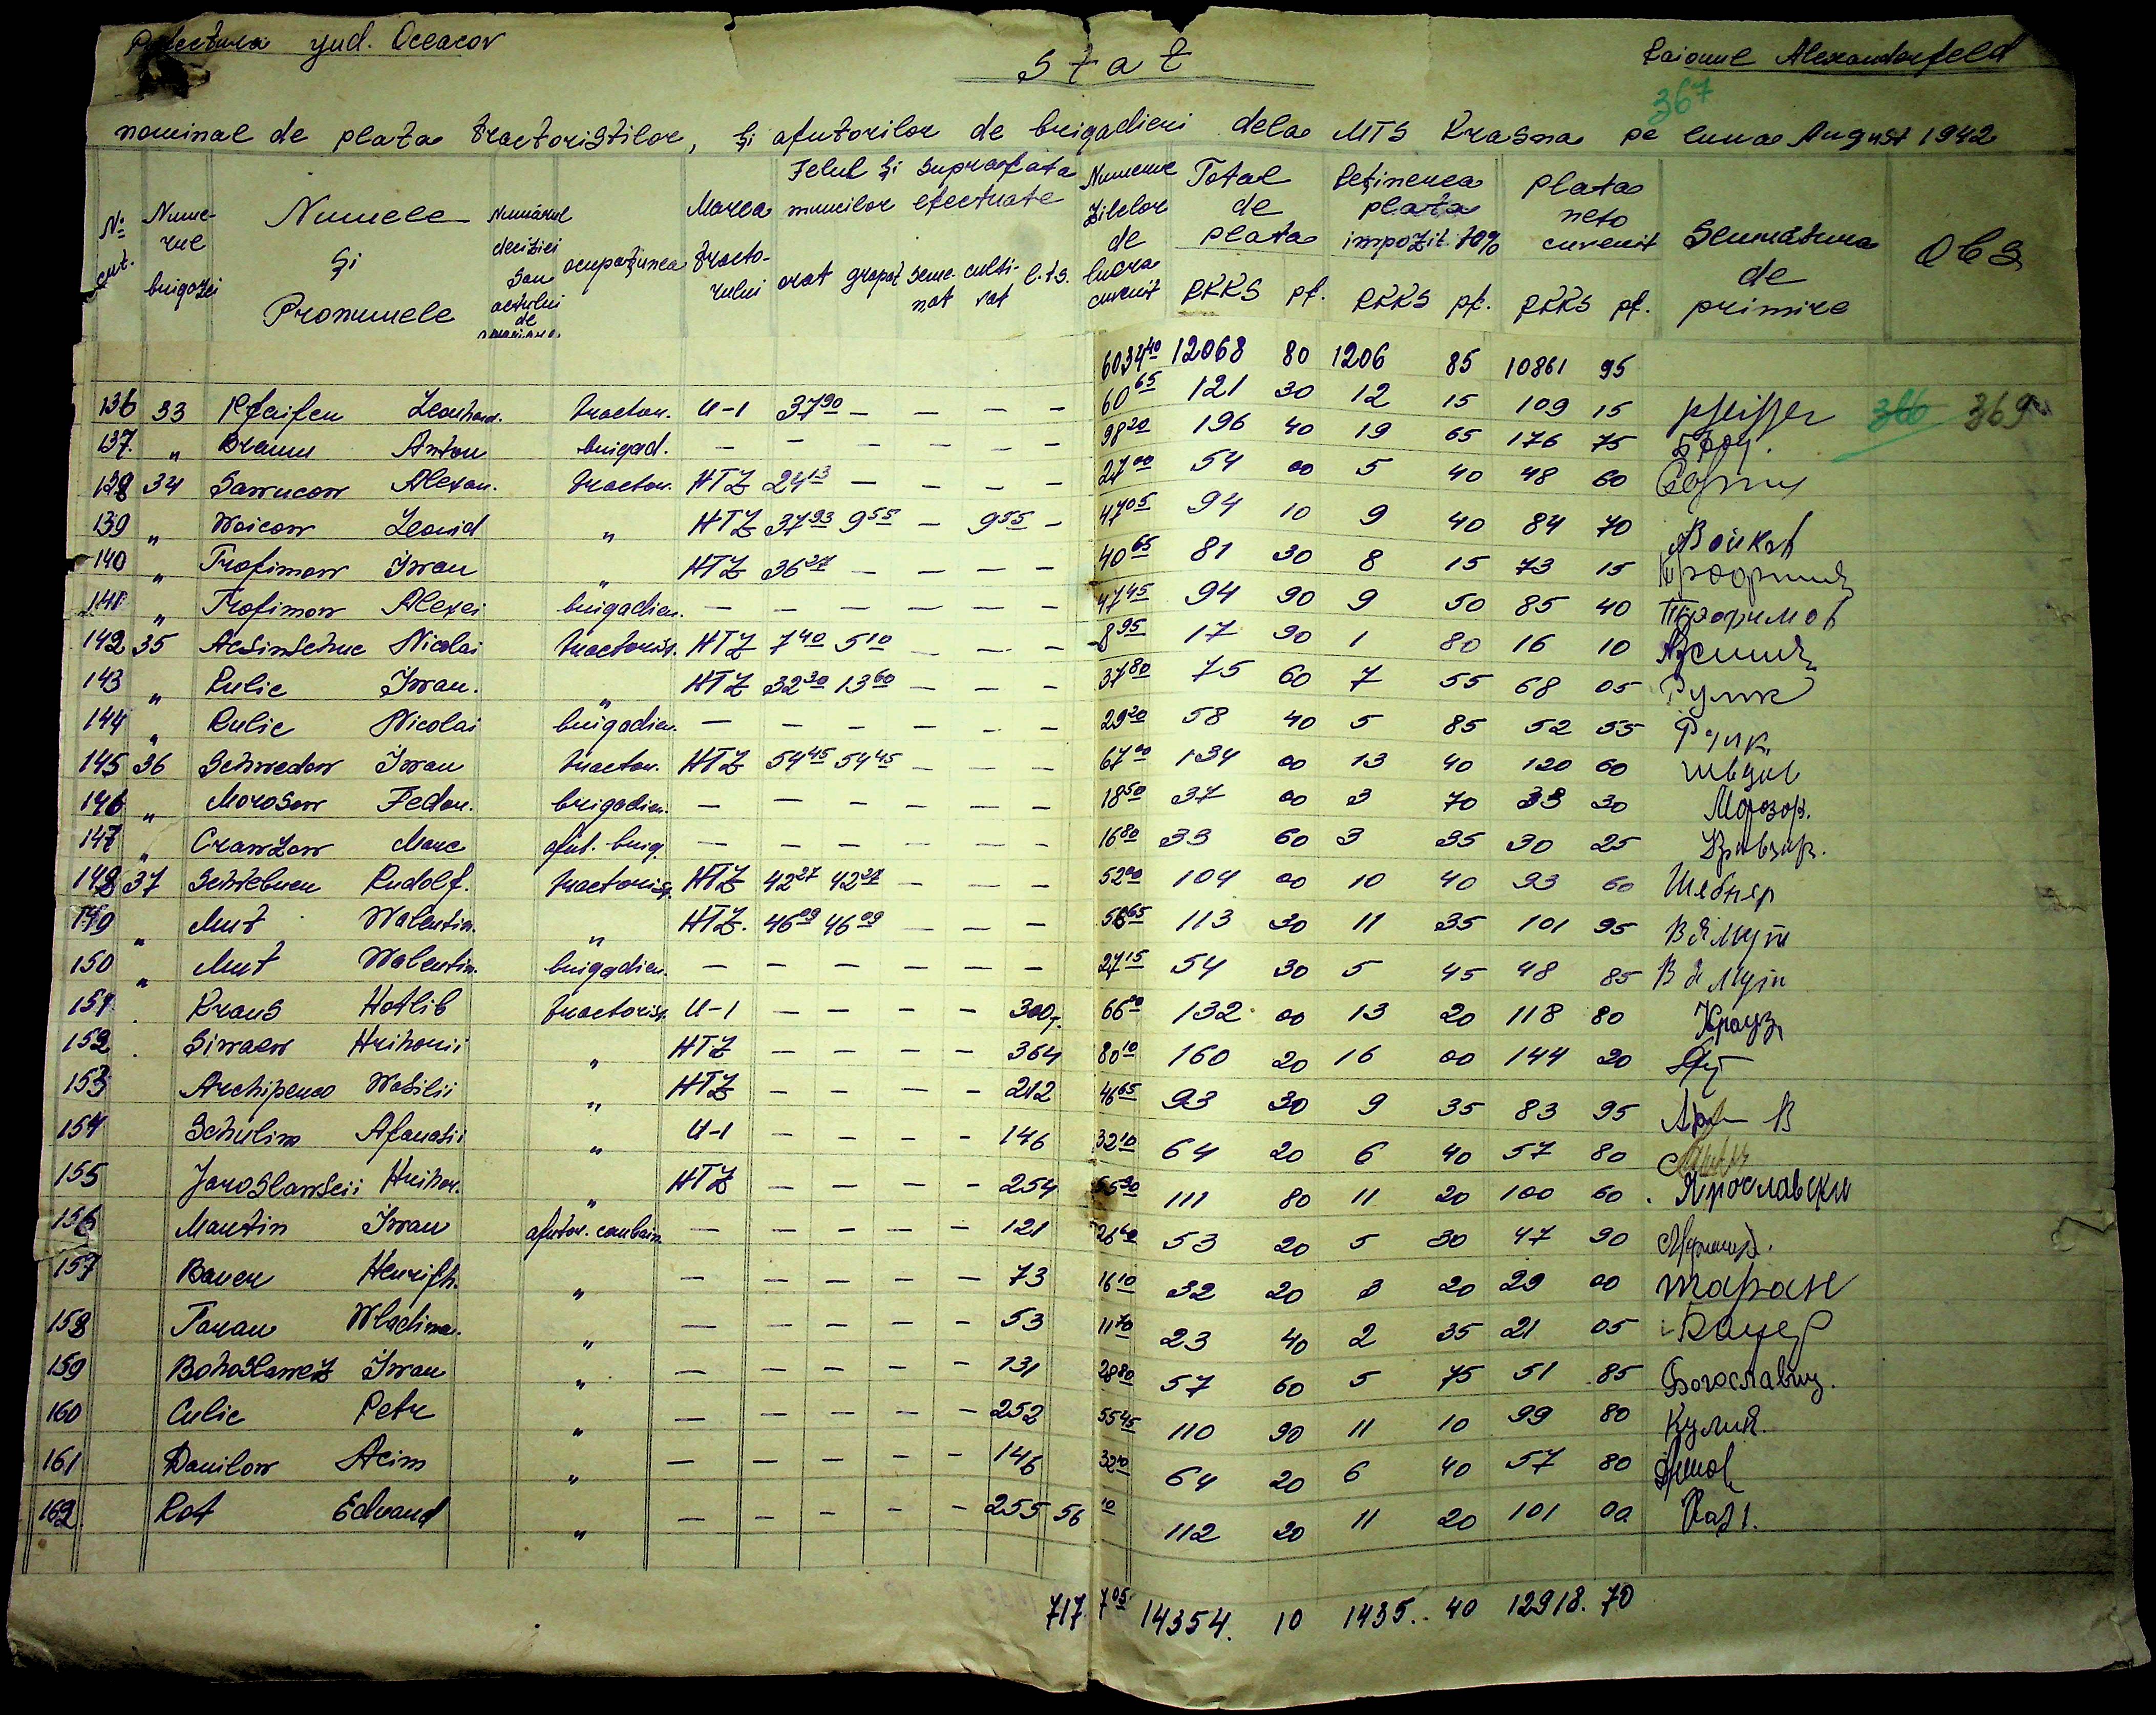 Prefectura jud. Oceacov
Raionul Alexandorfeld
Stat
367
nominal de plata tractoristilor, și ajutorilor de brigadieri dela MTS Krasna pe luna August 1942
№ crt. | Numerul brigazei | Numele și Pronumele | Numărul deciziei sau actului de | ocupațiunea | Marca tractorului | Felul și suprafata muncilor efectuate: arat, grapat, semenat, cultivat, c.t.s. | Numerul zilelor de lucru cuvenit | Total de plata RKKS pf. | Reținerea plata impozit 10% RKKS pf. | Plata neto cuvenit RKKS pf. | Semnătura de primire | Obs
6034 40 12068 80 1206 85 10861 95
136 33 Pfaifer Leonhard. tractor. U-1 37 90 — — — — 60 65 121 30 12 15 109 15 Pfeiffer 366 369
137. " Braun Anton brigad. — — — — — — 98 20 196 40 19 65 176 75
138 34 Sawucow Alexan. tractor. HTZ 24 13 — — — — 27 00 54 00 5 40 48 60
139 " Woicow Leonid " HTZ 37 93 9 55 — 9 55 — 47 05 94 10 9 40 84 70 Войков
140 " Trofimow Iwan " HTZ 36 27 — — — — 40 65 81 30 8 15 73 15
141 " Trofimow Alexei brigadier. — — — — — — 47 45 94 90 9 50 85 40 Трофимов
142 35 Acsintschuc Nicolai tractorist. HTZ 7 40 5 10 — — — 8 95 17 90 1 80 16 10
143 " Rulic Iwan. " HTZ 32 30 13 60 — — — 37 80 75 60 7 55 68 05 Рулик
144 " Rulic Nicolai brigadier. — — — — — — 29 20 58 40 5 85 52 55 Рулик
145 36 Schwedow Iwan tractor. HTZ 54 45 54 45 — — — 67 00 134 00 13 40 120 60 Шведов
146 " Morosow Fedor. brigadier. — — — — — — 18 50 37 00 3 70 33 30 Морозов.
147 " Crawzow Marc ajut. brig. — — — — — — 16 80 33 60 3 35 30 25
148 37 Schtebner Rudolf. tractorist. HTZ 42 27 42 27 — — — 52 00 104 00 10 40 93 60 Штебнер
149 " Mut Walentin. " HTZ. 46 09 46 09 — — — 56 65 113 30 11 35 101 95 В Я Мут
150 " Mut Walentin. brigadier. — — — — — — 27 15 54 30 5 45 48 85 В Я Мут
151 . Kraus Hotlib tractorist. U-1 — — — — 300 66 00 132 00 13 20 118 80 Крауз
152 . Siwaew Hrihorii " HTZ — — — — 364 80 10 160 20 16 00 144 20
153 Archipenco Wasilii " HTZ — — — — 212 46 65 93 30 9 35 83 95
154 Schulim Afanasii " U-1 — — — — 146 32 10 64 20 6 40 57 80
155 Jaroslawscii Hrihor. " HTZ — — — — 254 55 90 111 80 11 20 100 60 Ярославски
156 Martin Iwan ajutor. combain — — — — — 121 26 60 53 20 5 30 47 90
157 Bauer Henrich. " — — — — — 73 16 10 32 20 3 20 29 00 Таран
158 Taran Wladimir. " — — — — — 53 11 70 23 40 2 35 21 05 Бауер
159 Bohoslawetz Iwan " — — — — — 131 28 80 57 60 5 75 51 85 Богославец.
160 Culic Petr " — — — — — 252 55 45 110 90 11 10 99 80 Кулик.
161 Danilow Acim " — — — — — 146 32 10 64 20 6 40 57 80
162. Rot Edvard " — — — — — 255 56 10 112 20 11 20 101 00
717 7 05 14354. 10 1435.. 40 12918. 70